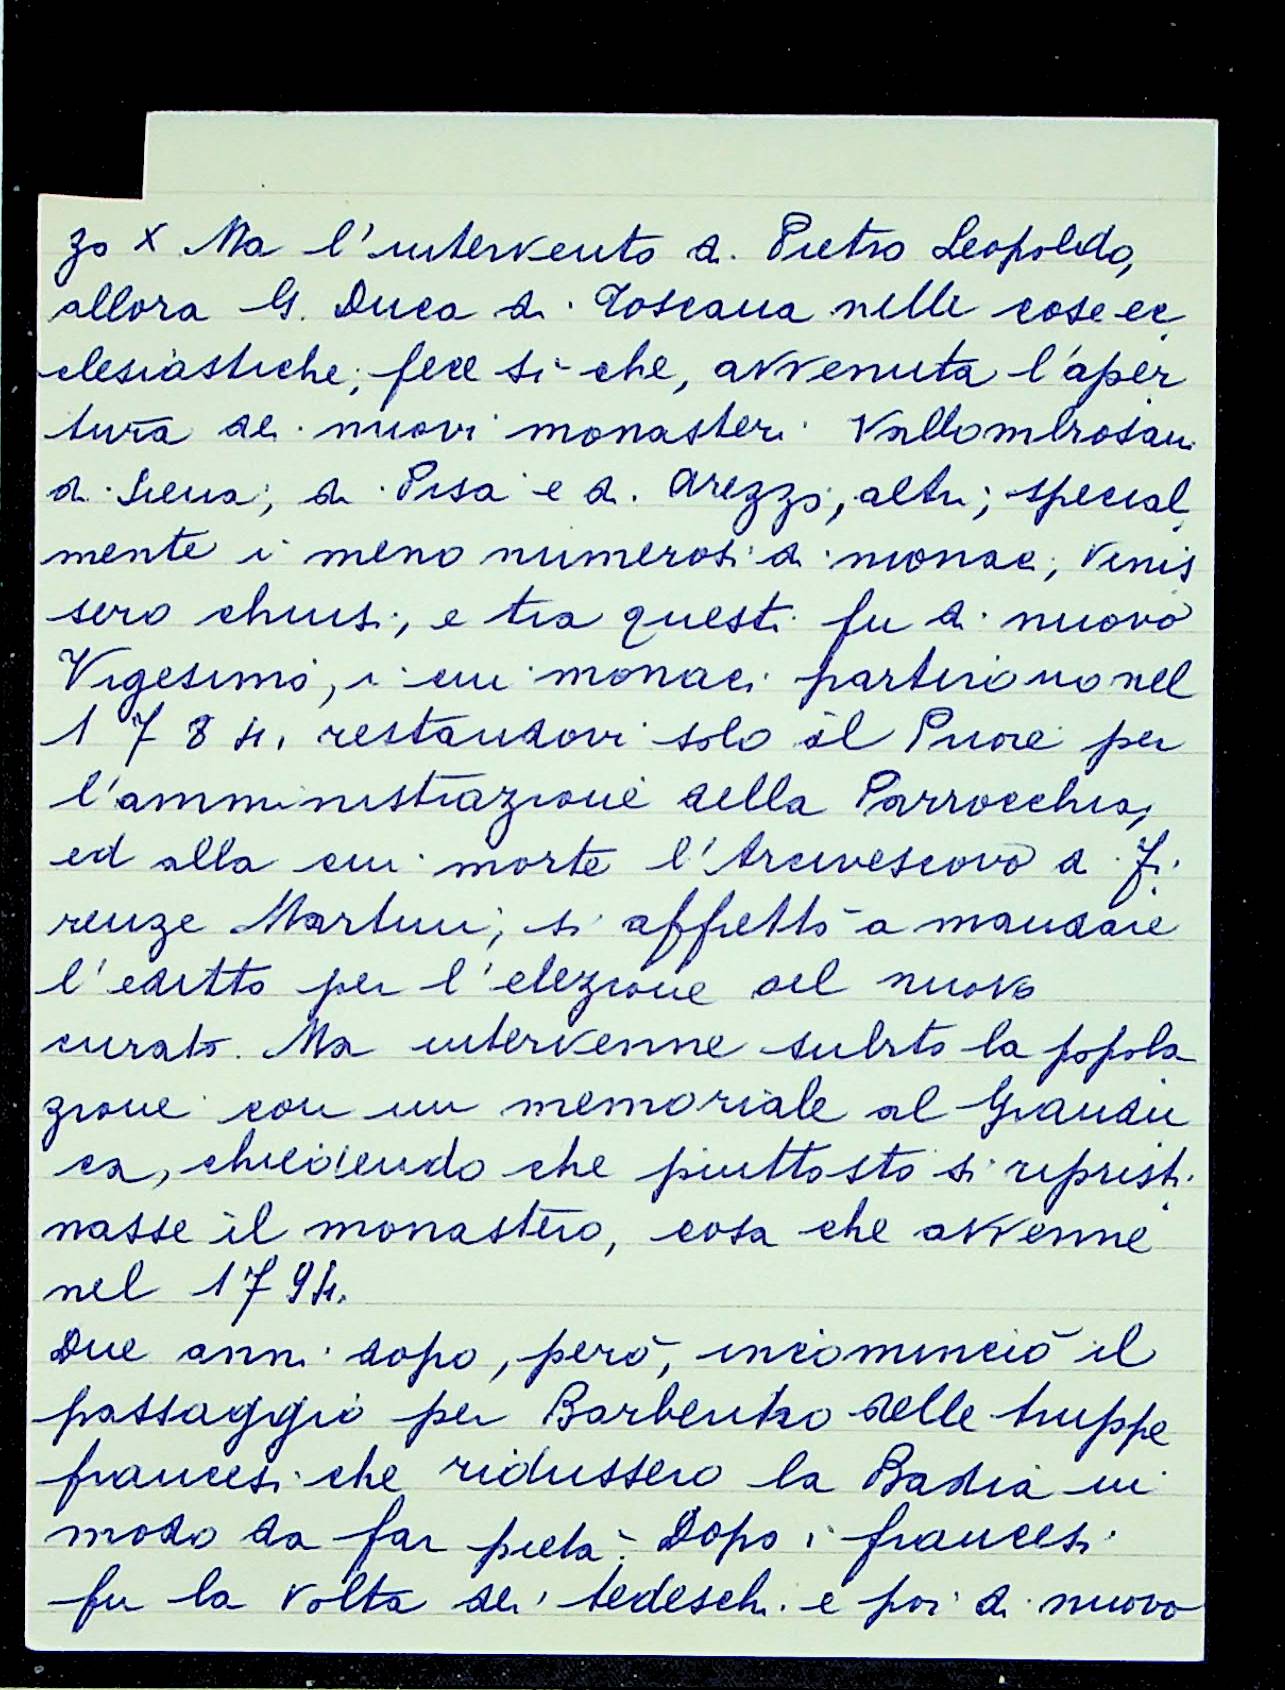 zo x Ma l'intervento di Pietro Leopoldo,
allora G. Duca di Toscana nelle cose ec
clesiastiche, fece sì che, avvenuta l'aper
tura dei nuovi monasteri Vallombrosani
di Siena, di Pisa e di Arezzo, altri, special
mente i meno numerosi di monaci, venis
sero chiusi, e tra questi fu di nuovo
Vigesimo, i cui monaci partirono nel
1784. restandovi solo il Priore per
l'amministrazione della Parrocchia,
ed alla cui morte l'Arcivescovo di Fi
renze Martini, si affrettò a mandare
l'editto per l'elezione del nuovo
curato. Ma intervenne subito la popola
zione con un memoriale al Grandu
ca, chiedendo che piuttosto si ripristi
nasse il monastero, cosa che avvenne
nel 1794.
Due anni dopo, però, incominciò il
passaggio per Barberino delle truppe
francesi che ridussero la Badia in
modo da far pietà. Dopo i francesi
fu la volta dei tedeschi e poi di nuovo